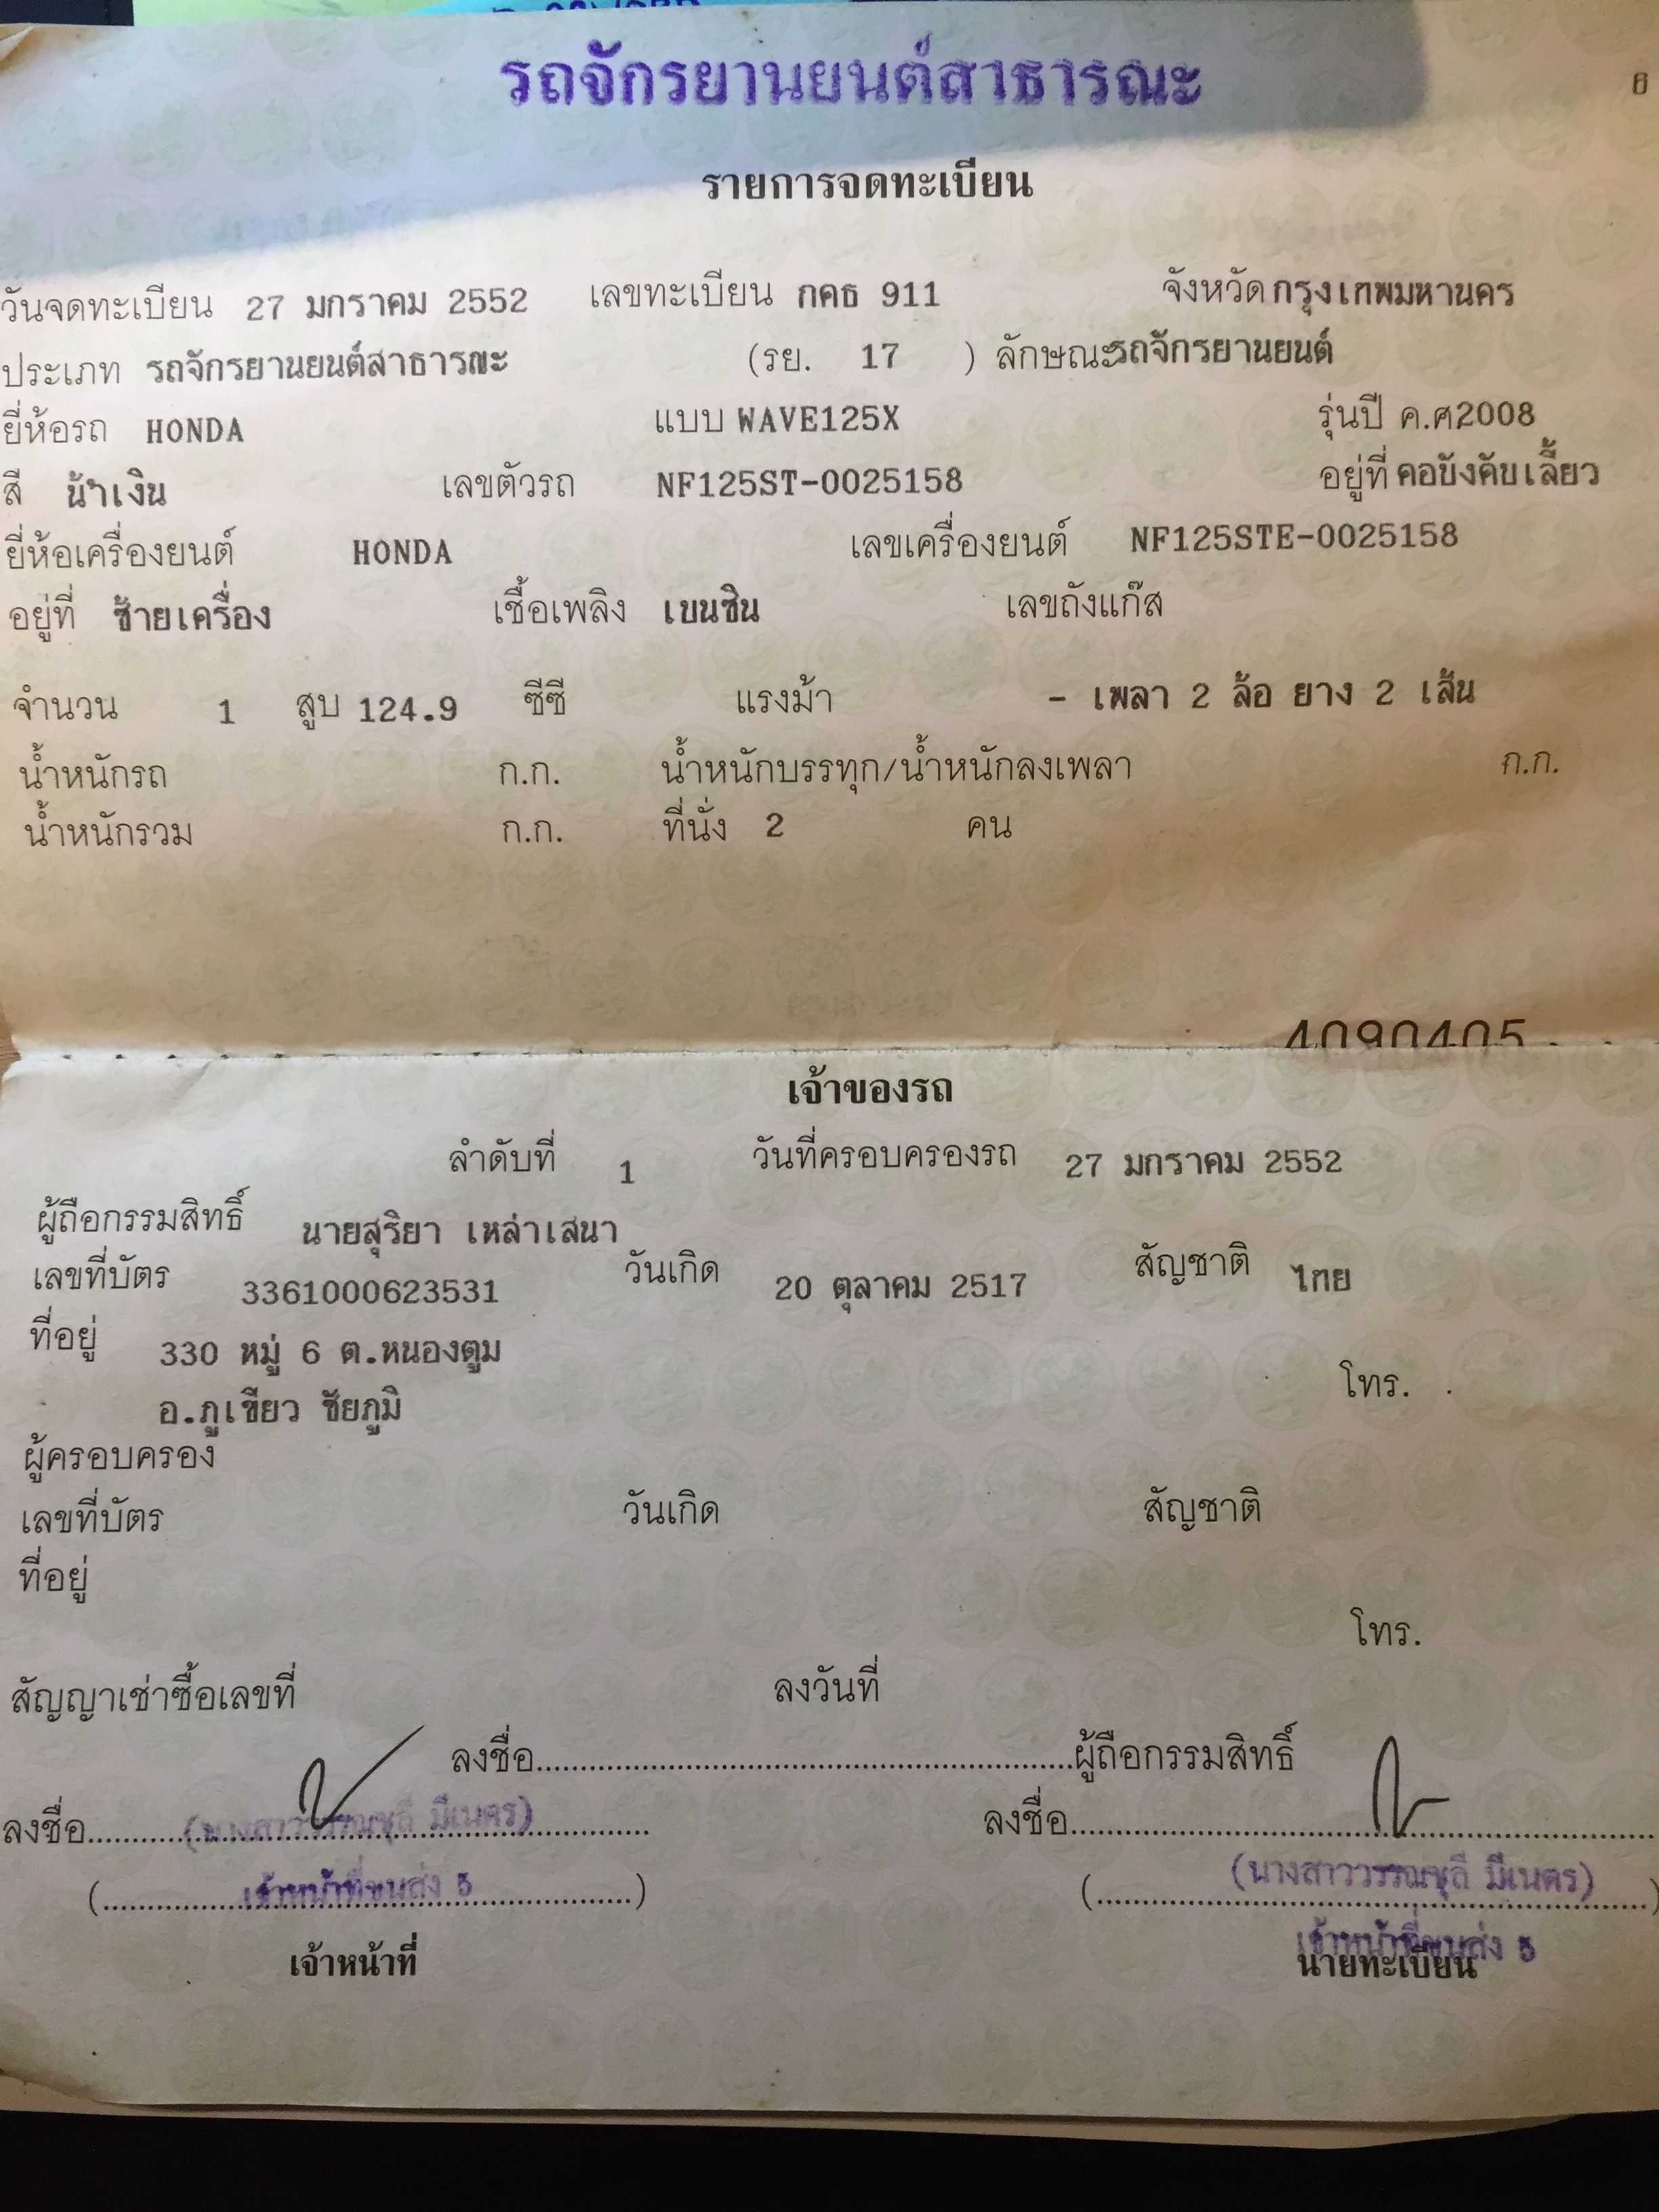 รถจักรยานยนต์สาธารณะ
6
รายการจดทะเบียน
วันจดทะเบียน 27 มกราคม 2552 เลขทะเบียน กคธ 911 จังหวัด กรุงเทพมหานคร
ประเภท รถจักรยานยนต์สาธารณะ (รย. 17 ) ลักษณะ รถจักรยานยนต์
ยี่ห้อรถ HONDA แบบ WAVE125X รุ่นปี ค.ศ2008
สี น้ำเงิน เลขตัวรถ NF125ST-0025158 อยู่ที่ คอบังคับเลี้ยว
ยี่ห้อเครื่องยนต์ HONDA เลขเครื่องยนต์ NF125STE-0025158
อยู่ที่ ซ้ายเครื่อง เชื้อเพลิง เบนซิน เลขถังแก๊ส
จำนวน 1 สูบ 124.9 ซีซี แรงม้า - เพลา 2 ล้อ ยาง 2 เส้น
น้ำหนักรถ ก.ก. น้ำหนักบรรทุก/น้ำหนักลงเพลา ก.ก.
น้ำหนักรวม ก.ก. ที่นั่ง 2 คน
4090405
เจ้าของรถ
ลำดับที่ 1 วันที่ครอบครองรถ 27 มกราคม 2552
ผู้ถือกรรมสิทธิ์ นายสุริยา เหล่าเสนา
เลขที่บัตร 3361000623531 วันเกิด 20 ตุลาคม 2517 สัญชาติ ไทย
ที่อยู่ 330 หมู่ 6 ต.หนองตูม
อ.ภูเขียว ชัยภูมิ โทร.
ผู้ครอบครอง
เลขที่บัตร วันเกิด สัญชาติ
ที่อยู่
โทร.
สัญญาเช่าซื้อเลขที่ ลงวันที่
ลงชื่อ..........ผู้ถือกรรมสิทธิ์
ลงชื่อ.......... (นางสาววรรณชุลี มีเนตร) ลงชื่อ..........
(นางสาววรรณชุลี มีเนตร)
(เจ้าหน้าที่ขนส่ง 5) (..........)
เจ้าหน้าที่ขนส่ง 5
เจ้าหน้าที่ นายทะเบียน